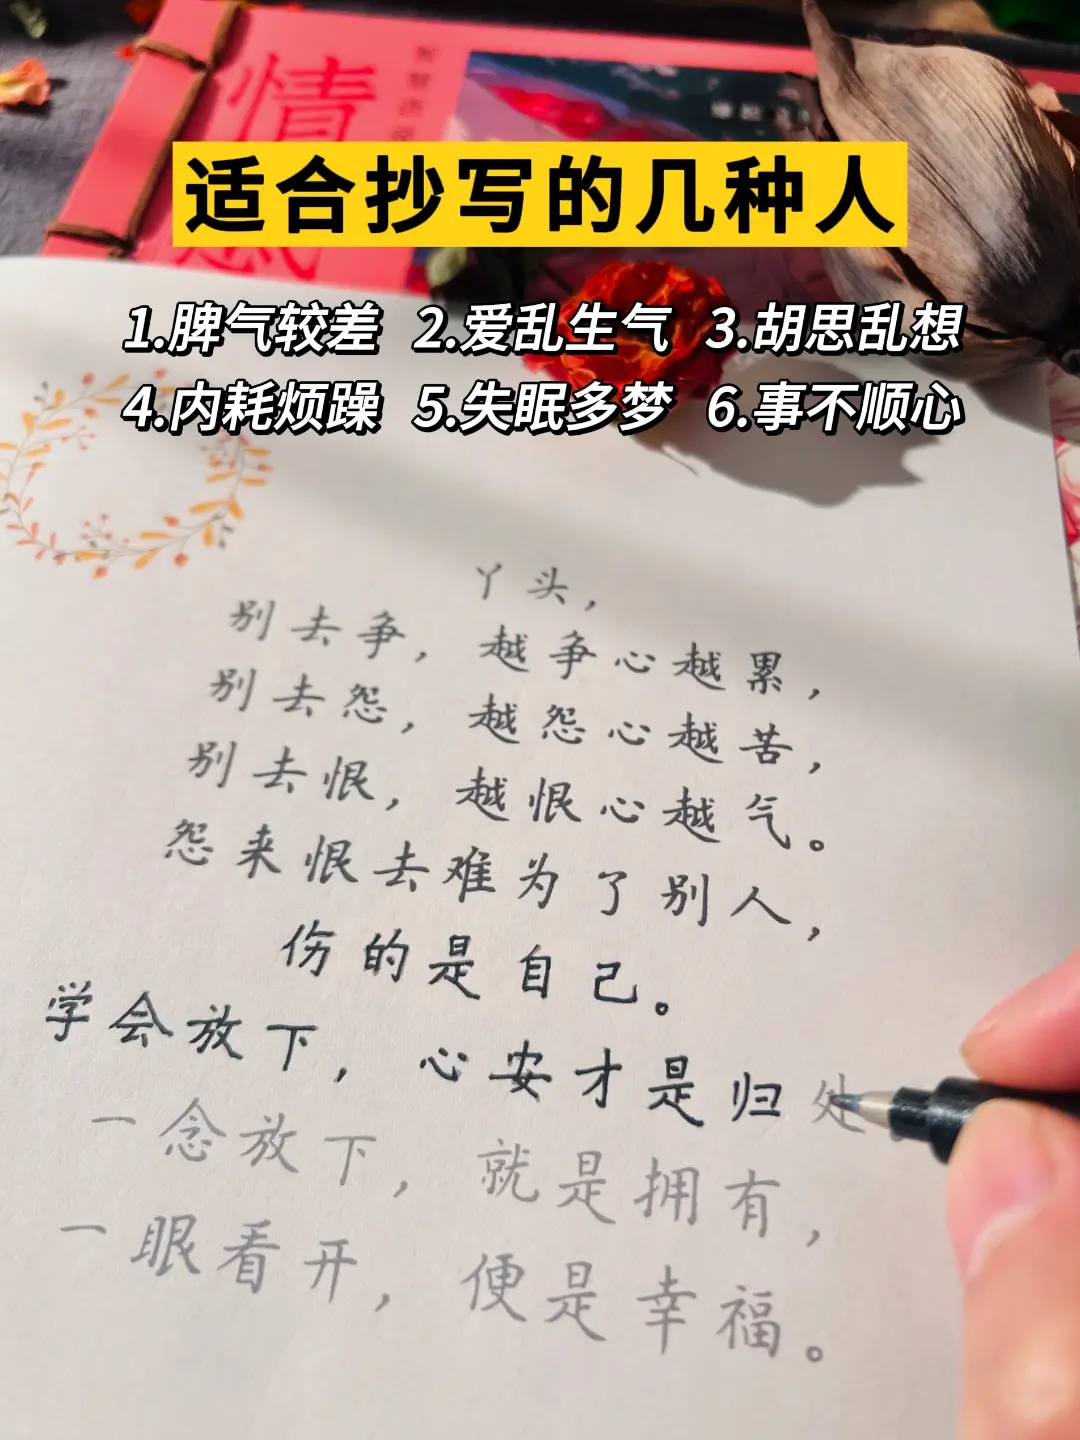 情
适合抄写的几种人
1.脾气较差 2.爱乱生气 3.胡思乱想
4.内耗烦躁 5.失眠多梦 6.事不顺心
丫头，
别去争，越争心越累，
别去怨，越怨心越苦，
别去恨，越恨心越气。
怨来恨去难为了别人，
伤的是自己。
学会放下，心安才是归处
一念放下，就是拥有，
一眼看开，便是幸福。